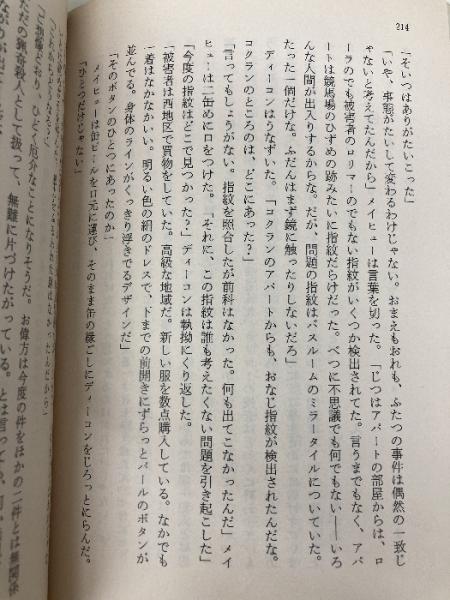 214
「そいつはありがたいこった」
「いや、事態がたいして変わるわけじゃない。おまえもおれも、ふたつの事件は偶然の一致じ
ゃないと考えてたんだから」メイヒューは言葉を切った。「じつはアパートの部屋からは、ロ
ーラのでも被害者のロリマーのでもない指紋がいくつか検出されてた。言うまでもなく、アパ
ートは競馬場のひづめの跡みたいに指紋だらけだった。べつに不思議でも何でもない――いろ
んな人間が出入りするからな。だが、問題の指紋はバスルームのミラータイルについていた。
たった一個だけな。ふだんはまず鏡に触ったりしないだろ」
ディーコンはうなずいた。「コクランのアパートからも、おなじ指紋が検出されたんだな。
コクランのところのは、どこにあった？」
「言ってもしょうがない。指紋を照合したが前科はなかった。何も出てこなかったんだ」メイ
ヒューは二缶めに口をつけた。「それに、この指紋は誰も考えたくない問題を引き起こした」
「今度の指紋はどこで見つかった？」ディーコンは執拗にくり返した。
「被害者は西地区で買物をしていた。高級な地域だ。新しい服を数点購入している。なかでも
一着はなかなかいい。明るい色の絹のドレスで、下までの前開きにずらっとパールのボタンが
並んでる。身体のラインがくっきり浮きでるデザインだ」
「そのボタンのひとつにあったのか」
メイヒューは缶ビールを口元に運び、そのまま缶の縁ごしにディーコンをじろっとにらんだ。
「ひとつだけじゃない」
「ご想像どおり、ひどく厄介なことになりそうだ。お偉方は今度の件をほかの二件とは無関係
ただの猟奇殺人として扱って、無難に片づけたがっている。とは言って